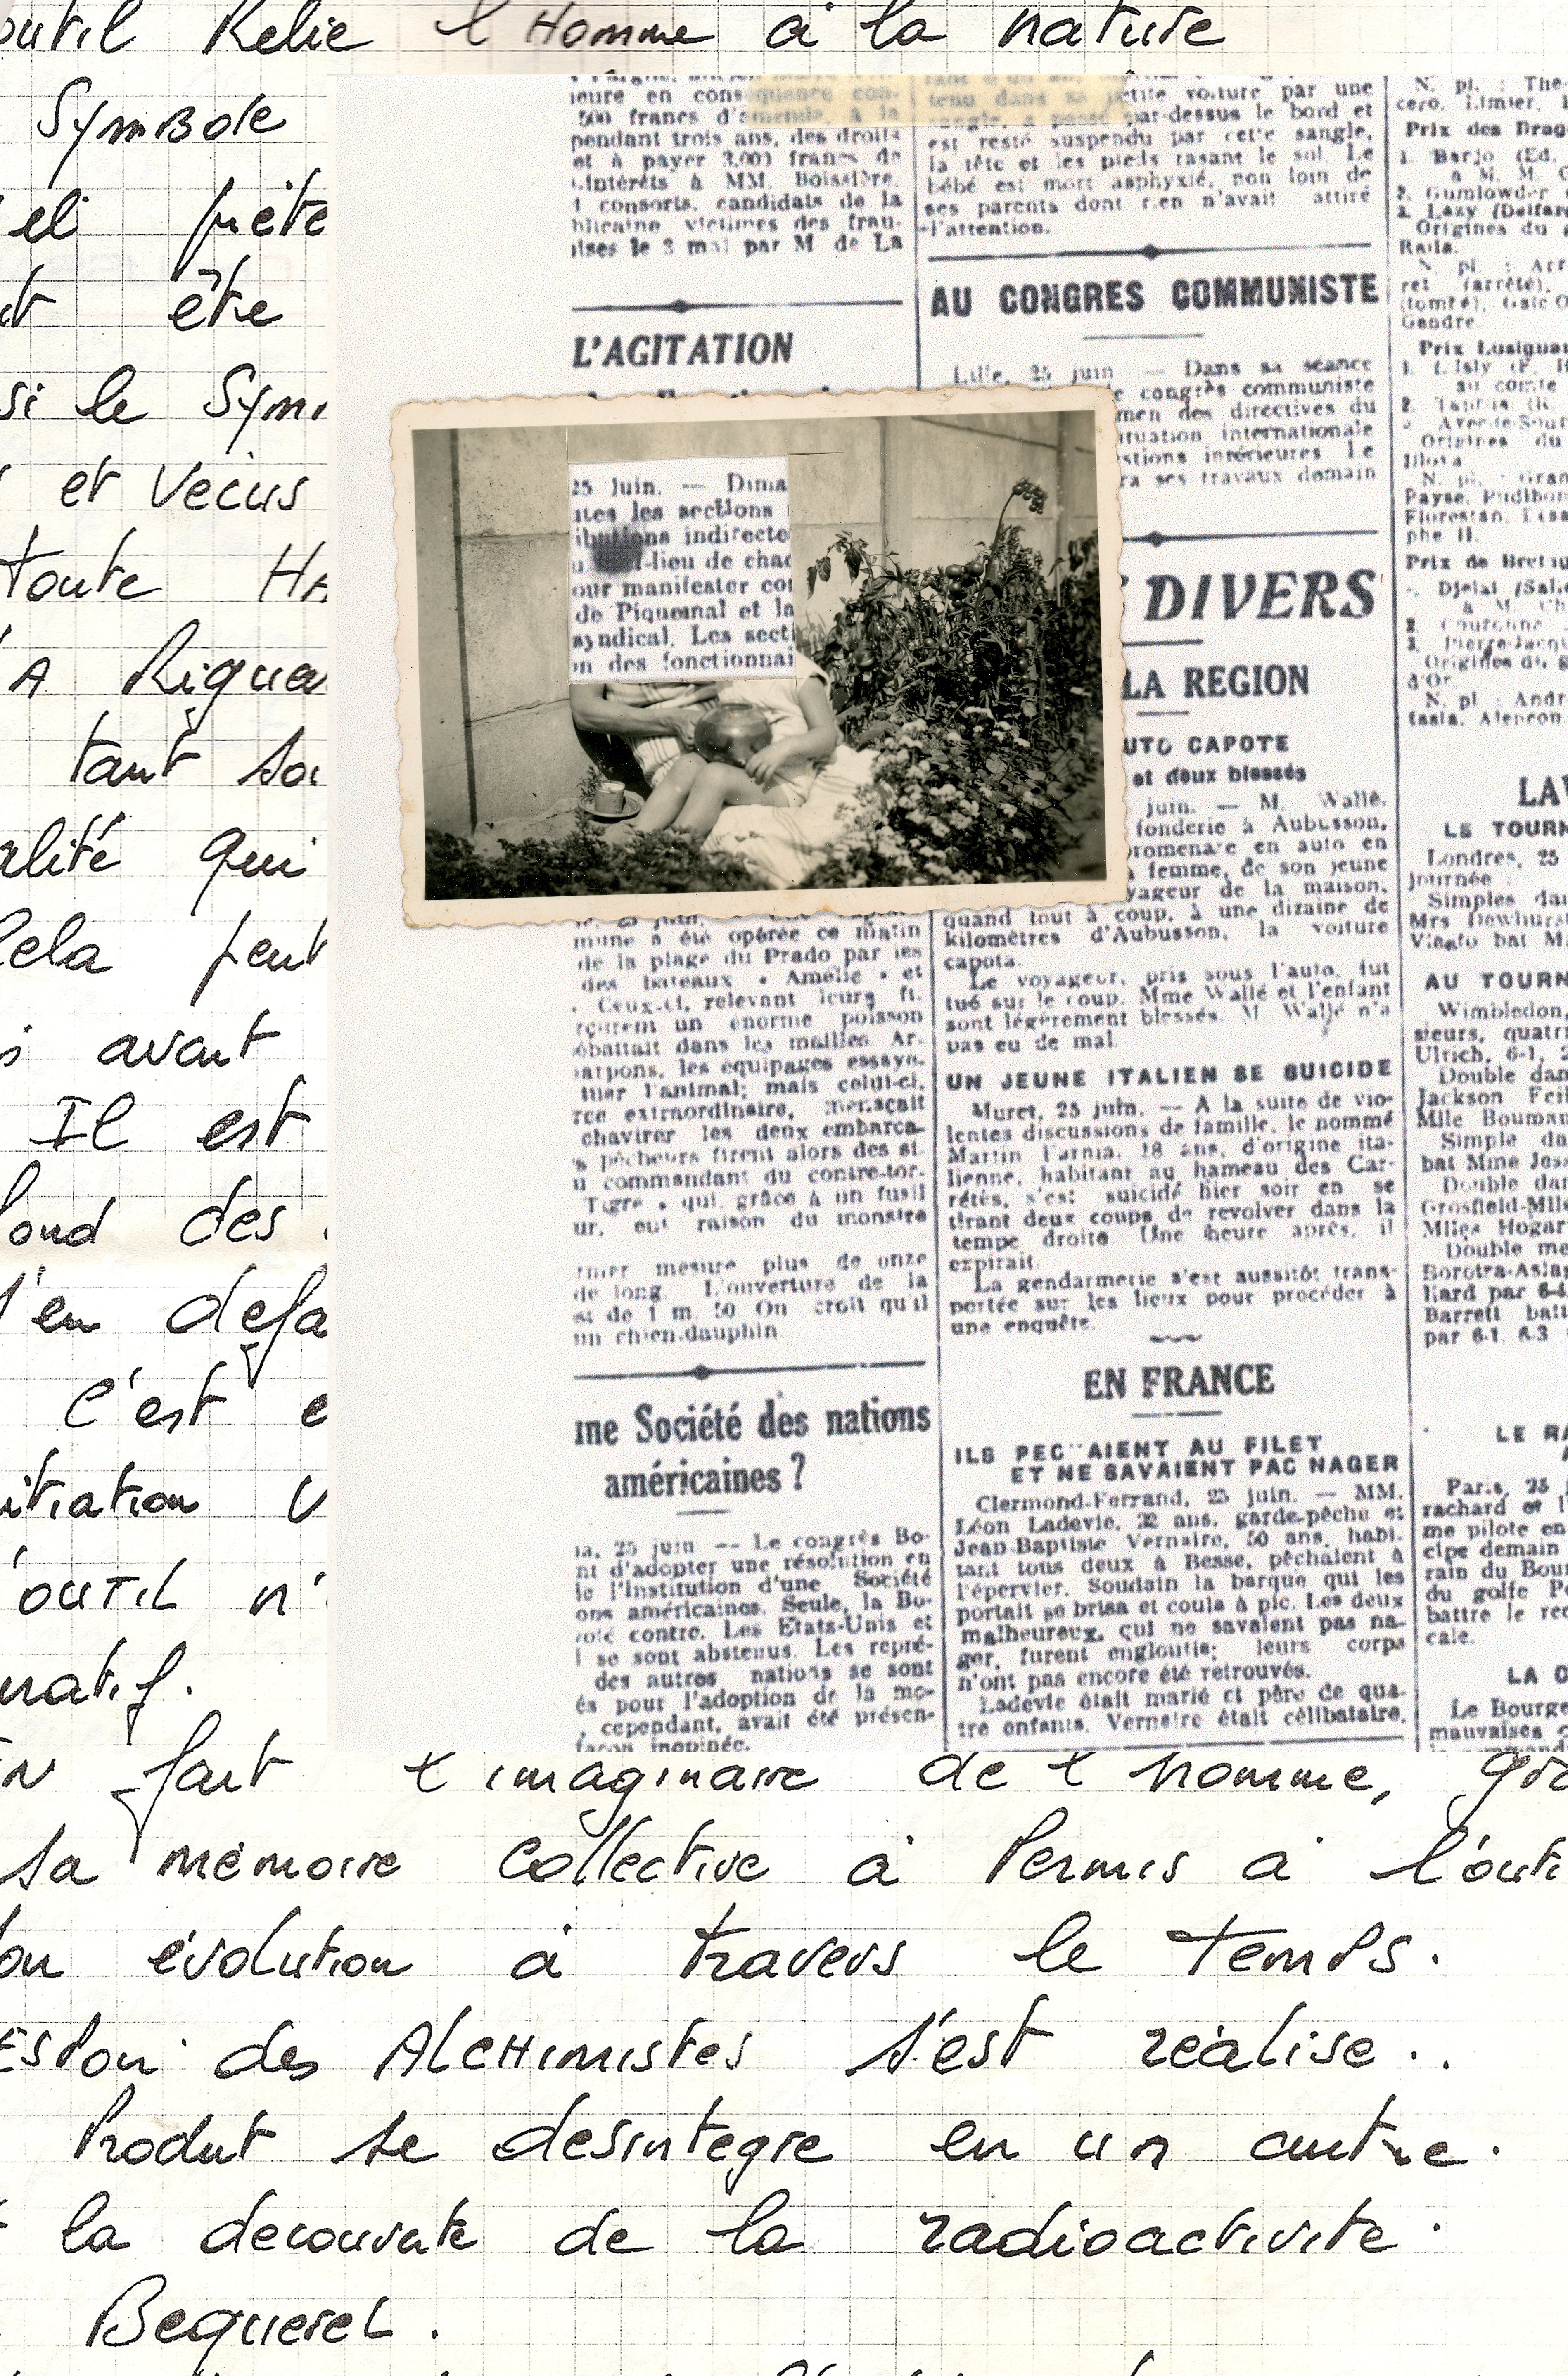 outil Relie l'Homme à la nature
Symbole
et prête
être
si le Sym
et Vecus
toute HA
A Rigueu
tant soi
alité qui
Cela peut
avant
Il est
fond des
s'en defa
C'est e
itiation V
l'OUTIL n'
matif.
fait l'imaginaire de l'homme, gra
sa mémoire Collective à Permis à l'outi
évolution à travers le Temps.
des Alchimistes s'est réalise..
Produt se desintegre en un autre.
la decouverte de la radioactivite.
Bequerel.
ieure en conséquence con-
500 francs d'amende, à la
pendant trois ans, des droits
et à payer 3.000 francs de
intérêts à MM. Boissière,
consorts, candidats de la
blicaine victimes des frau-
ises le 3 mai par M de La
L'AGITATION
25 Juin. — Dima
utes les sections
ibutions indirecte
-lieu de chac
our manifester con
de Piquemal et la
syndical. Les secti
on des fonctionnai
mune a été opérée ce matin
de la plage du Prado par les
des bateaux « Amélie » et
Ceux-ci, relevant leurs fi-
rçurent un énorme poisson
ébattait dans les mailles. Ar-
arpons, les équipages essayè-
tuer l'animal; mais celui-ci,
rce extraordinaire, menaçait
chavirer les deux embarca-
s pêcheurs firent alors des si-
u commandant du contre-tor-
Tigre » qui, grâce à un fusil
ur, eut raison du monstre
mesure plus de onze
de long. L'ouverture de la
st de 1 m. 50 On croit qu'il
un chien-dauphin
me Société des nations
américaines ?
ia, 25 juin — Le congrès Bo-
nt d'adopter une résolution en
de l'Institution d'une Société
ons américaines. Seule, la Bo-
voté contre. Les Etats-Unis et
se sont abstenus. Les repré-
des autres nations se sont
és pour l'adoption de la mo-
, cependant, avait été présen-
façon inopinée.
tenu dans sa petite voiture par une
sangle, a passé par-dessus le bord et
est resté suspendu par cette sangle,
la tête et les pieds rasant le sol. Le
bébé est mort asphyxié, non loin de
ses parents dont rien n'avait attiré
l'attention.
AU CONGRES COMMUNISTE
Lille, 25 juin — Dans sa séance
congrès communiste
men des directives du
ituation internationale
stions intérieures Le
ra ses travaux demain
DIVERS
LA REGION
UTO CAPOTE
et deux blessés
juin. — M. Wallé,
fonderie à Aubusson,
romenare en auto en
femme, de son jeune
yageur de la maison,
quand tout à coup, à une dizaine de
kilomètres d'Aubusson, la voiture
capota.
Le voyageur, pris sous l'auto, fut
tué sur le coup. Mme Wallé et l'enfant
sont légèrement blessés. M. Wallé n'a
pas eu de mal
UN JEUNE ITALIEN SE SUICIDE
Muret, 25 juin. — A la suite de vio-
lentes discussions de famille, le nommé
Martin Farnia, 18 ans, d'origine ita-
lienne, habitant au hameau des Car-
rétès, s'est suicidé hier soir en se
tirant deux coups de revolver dans la
tempe droite Une heure après, il
expirait.
La gendarmerie s'est aussitôt trans-
portée sur les lieux pour procéder à
une enquête.
EN FRANCE
ILS PEC AIENT AU FILET
ET NE SAVAIENT PAC NAGER
Clermond-Ferrand, 25 juin. — MM.
Léon Ladevie, 32 ans, garde-pêche et
Jean-Baptiste Vernaire, 50 ans, habi-
tant tous deux à Besse, pêchaient à
l'épervier. Soudain la barque qui les
portait se brisa et coula à pic. Les deux
malheureux, qui ne savaient pas na-
ger, furent engloutis; leurs corps
n'ont pas encore été retrouvés.
Ladevie était marié et père de qua-
tre enfants. Vernaire était célibataire.
N. pl. : The
cero, Limier,
Prix des Drag
1. Barjo (Ed.
à M. M. C
2. Gumlowder
3. Lazy (Delfar
Origines du g
Raila.
N. pl. : Arr
ret (arrêté),
(tombé), Gaic O
Gendre.
Prix Lusignan
1. L'Isly (F. H
au comte
Origines du
Illova
N. pl. : Gran
Payse, Pudibon
Florestan,
phe II.
Prix de Bretag
Djelal (Sal.
2. Couronne
3. Pierre-Jacqu
Origines du g
d'Or.
N. pl : Andr
tasia, Alençon,
LAW
LE TOURN
Londres, 25
journée :
Simples da
Mrs Dewhurst
Vlasto bat M
AU TOURN
Wimbledon,
sieurs, quatri
Ulrich, 6-1, 2
Double dam
Jackson Feil
Mlle Bouman
Simple da
bat Mme Jes
Double da
Grosfield-Mlle
Miles Hogar
Double me
Borotra-Aslan
liard par 6-4
Barrett batt
par 6-1, 6-3
LE RA
Paris, 25 j
rachard et l
me pilote en
cipe demain
rain du Bour
du golfe Pe
battre le rec
cale.
LA C
Le Bourge
mauvaises c